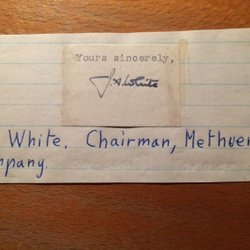 Yours sincerely,
J. A. White
White. Chairman, Methuen
mpany